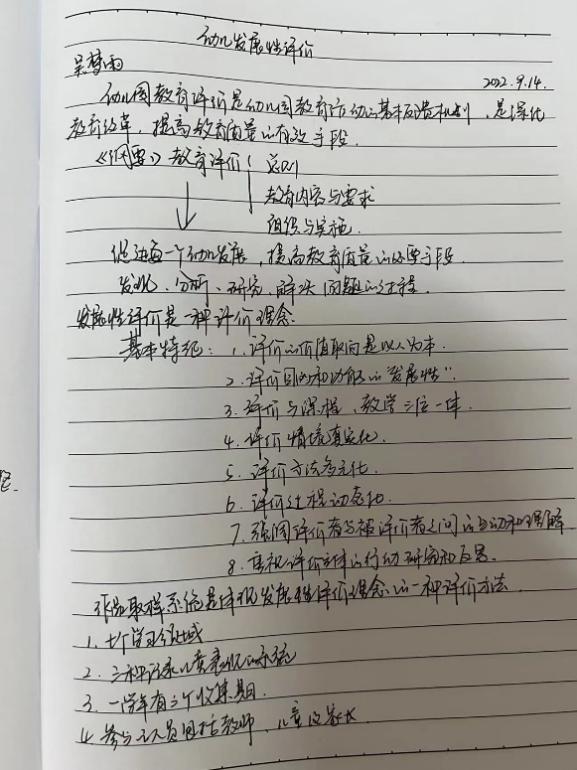 幼儿发展性评价
吴梦雨
2022.9.14.
幼儿园教育评价是幼儿园教育活动的基本反馈机制，是深化
教育改革，提高教育质量的有效手段.
《纲要》教育评价 总则
教育内容与要求
组织与实施.
促进每一个幼儿发展，提高教育质量的必要手段.
发现、分析、研究、解决问题的过程.
发展性评价是一种评价理念.
基本特征：1. 评价的价值取向是以人为本.
2. 评价目的和功能的“发展性”.
3. 评价与课程、教学三位一体.
4. 评价情境真实化.
5. 评价方法多元化.
6. 评价过程动态化.
7. 强调评价者与被评价者之间的互动和理解
8. 重视评价主体的行动研究和反思.
作品取样系统是体现发展性评价理念的一种评价方法.
1. 七个学习领域
2. 三种记录儿童表现的系统
3. 一学年有三个收集期.
4. 参与人员包括教师、儿童及家长.